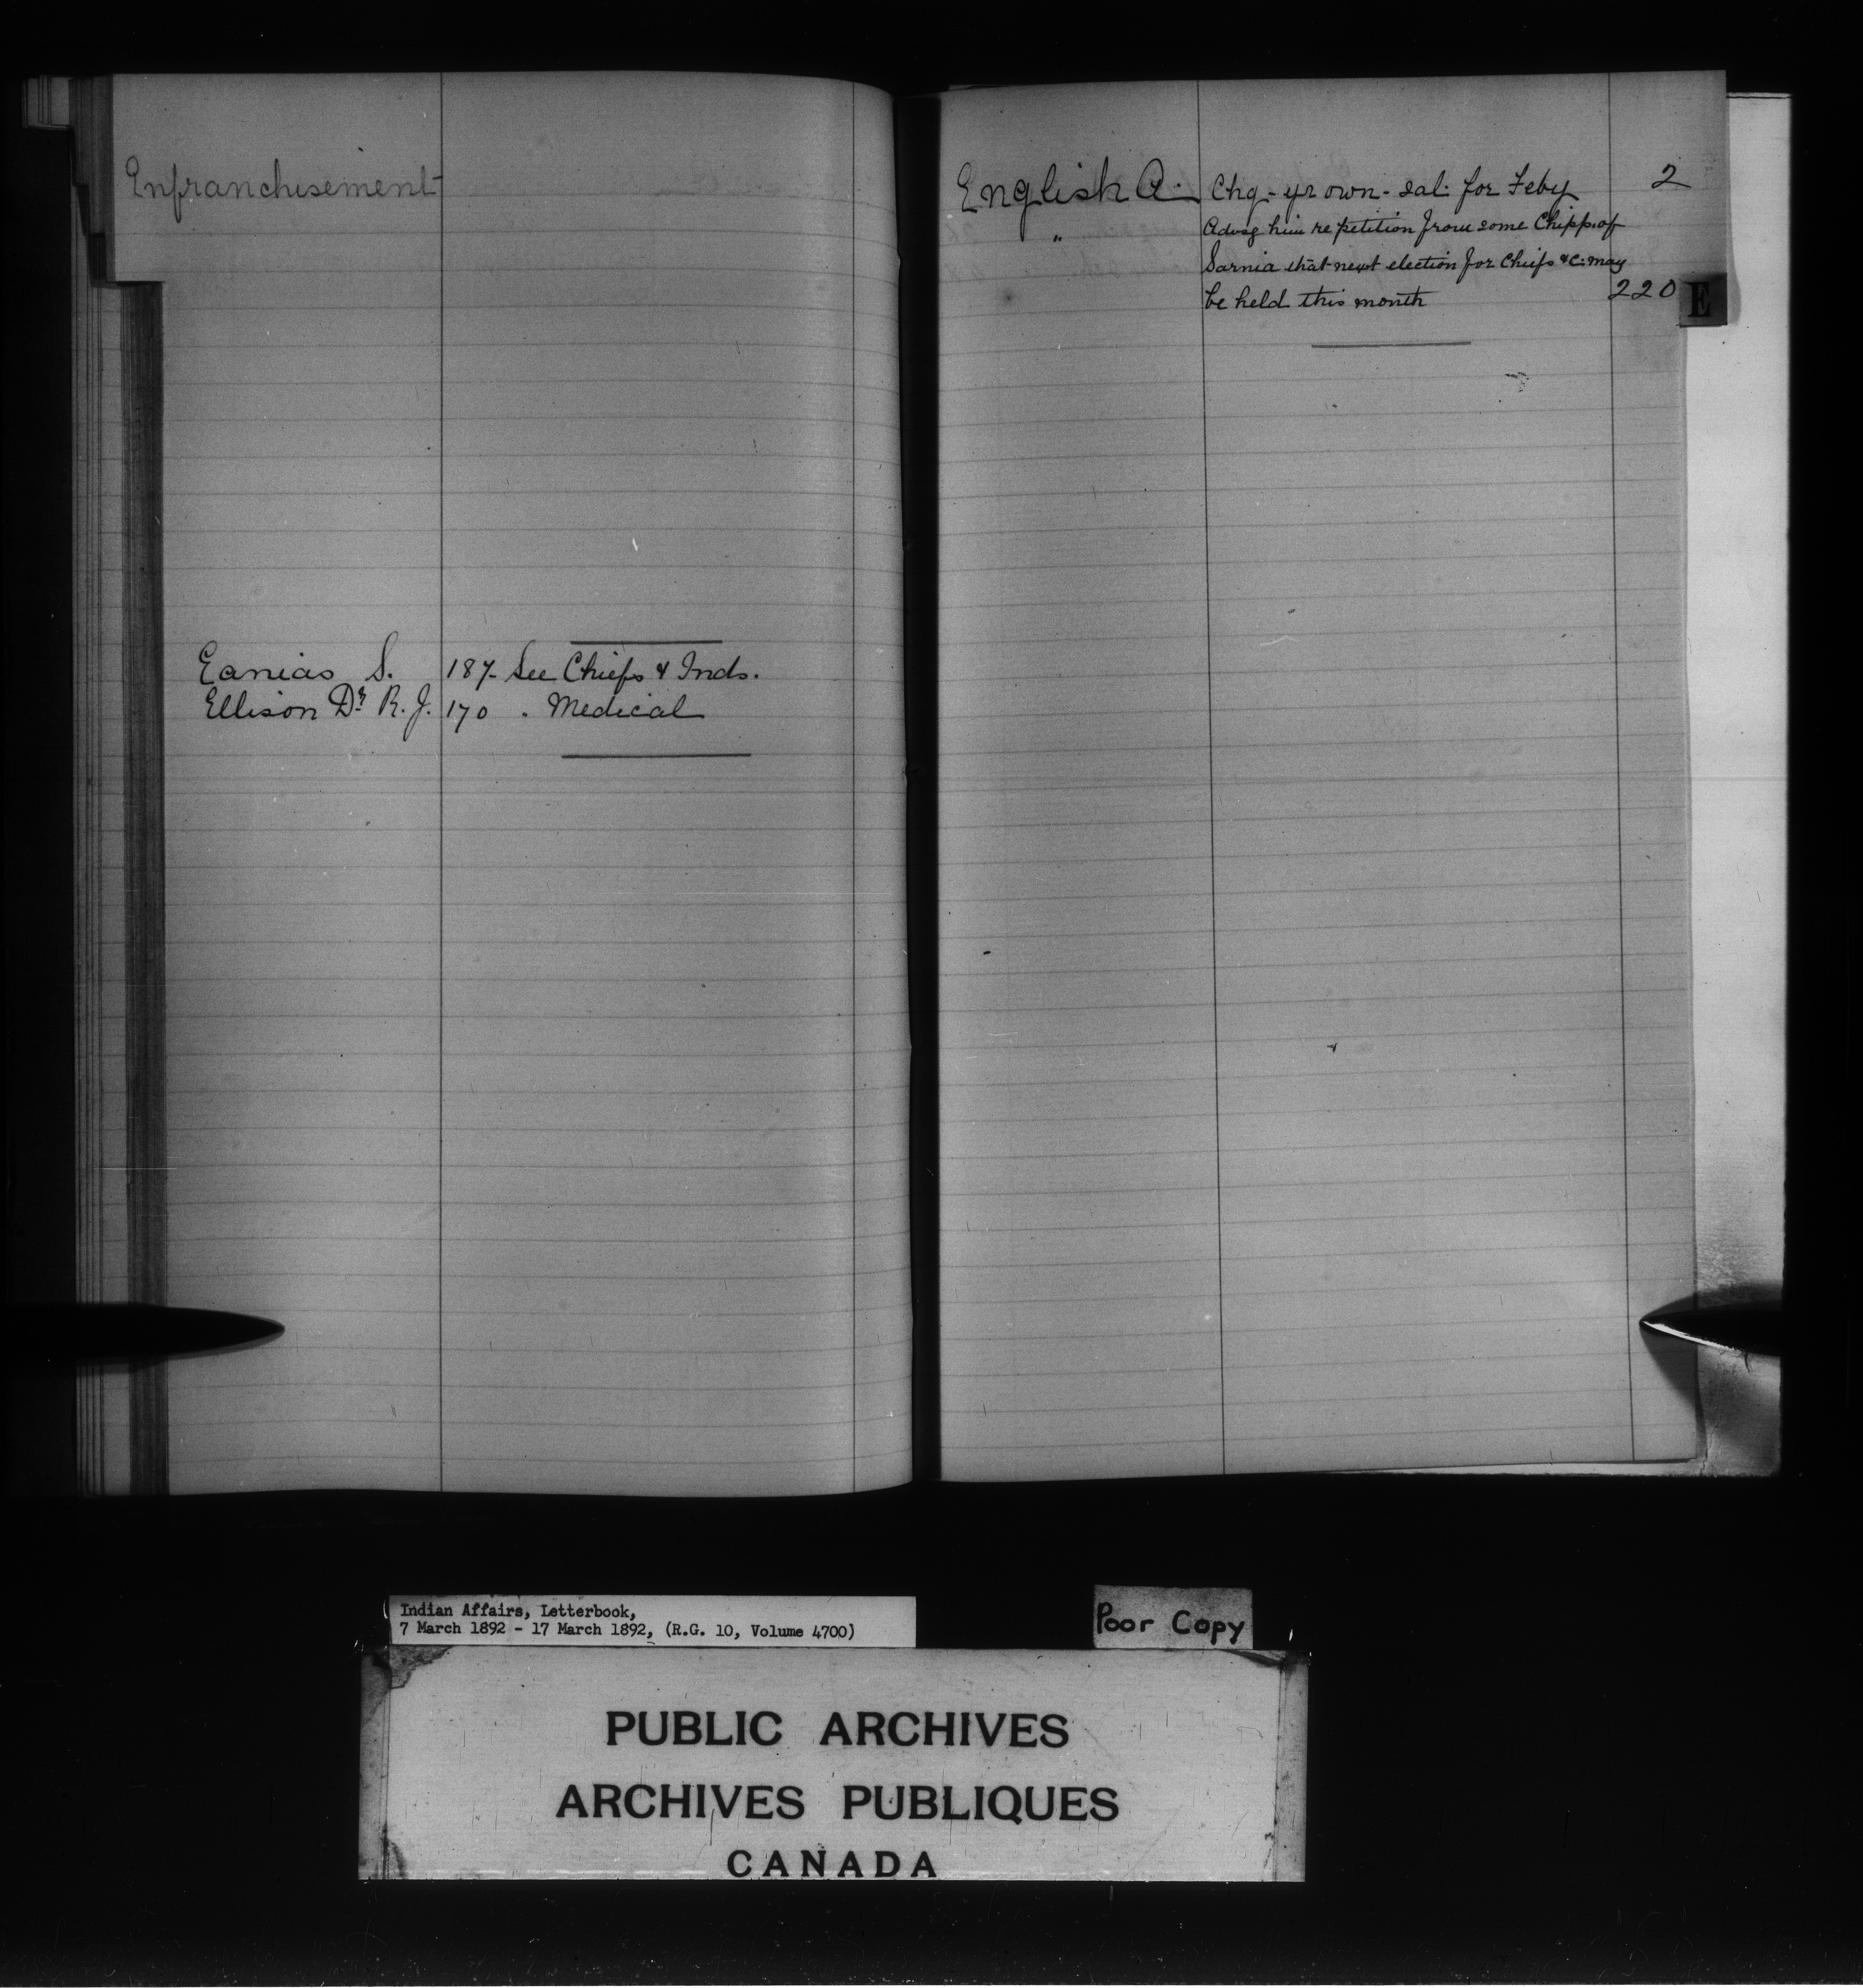 Enfranchisement
Eanias S. 187- See Chiefs & Inds.
Ellison Dr. R. J. 170 . Medical
English A. Chq- yr own- sal: for Feby 2
" Advsg him re petition from some Chipp. of
Sarnia that next election for Chiefs &c: may
be held this month 220
E
Indian Affairs, Letterbook,
7 March 1892 - 17 March 1892, (R.G. 10, Volume 4700)
Poor Copy
PUBLIC ARCHIVES
ARCHIVES PUBLIQUES
CANADA